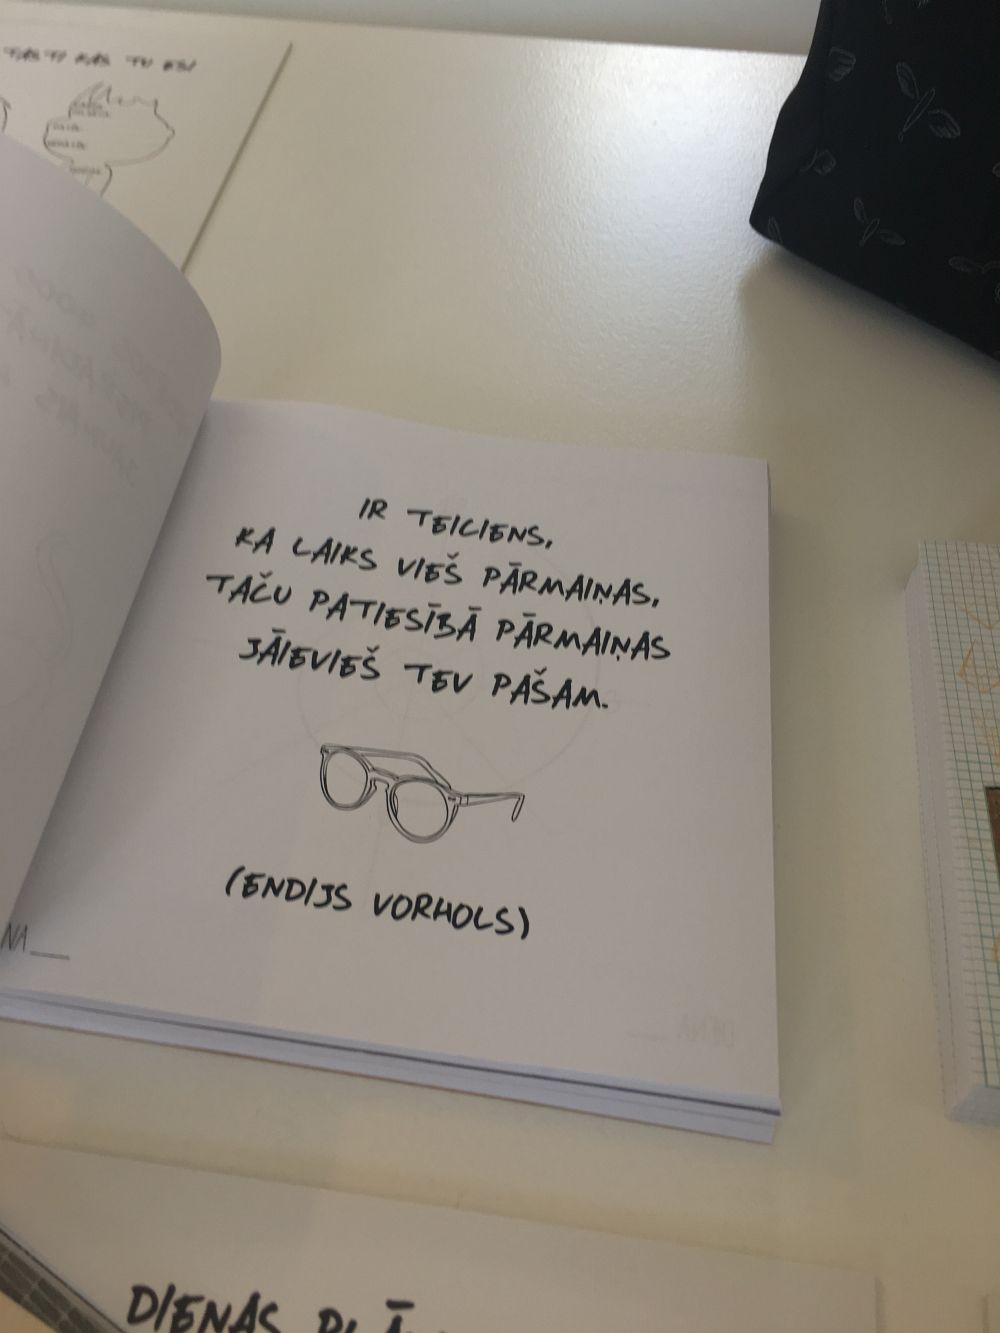 TU ESI
IR TEICIENS,
KA LAIKS VIEŠ PĀRMAIŅAS,
TAČU PATIESĪBĀ PĀRMAIŅAS
JĀIEVIEŠ TEV PAŠAM.
(ENDIJS VORHOLS)
NA
DIENA
DIENAS PLĀ